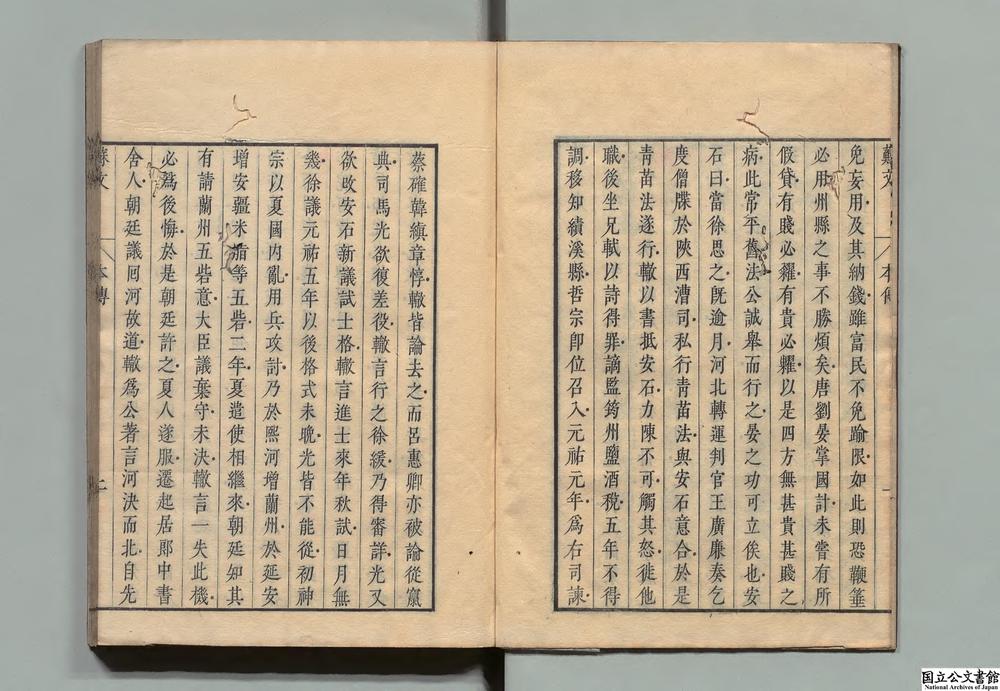 免妄用及其納錢雖富民不免踰限如此則恐鞭箠
必用州縣之事不勝煩矣唐劉晏掌國計未嘗有所
假貸有賤必糴有貴必糶以是四方無甚貴甚賤之
病此常平舊法公誠舉而行之晏之功可立俟也安
石曰當徐思之旣逾月河北轉運判官王廣廉奏乞
度僧牒於陝西漕司私行靑苗法與安石意合於是
靑苗法遂行轍以書抵安石力陳不可觸其怒徙他
職後坐兄軾以詩得罪謫監筠州鹽酒稅五年不得
調移知績溪縣哲宗卽位召入元祐元年爲右司諫
蔡確韓縝章惇轍皆論去之而呂惠卿亦被論從竄
典司馬光欲復差役轍言行之徐緩乃得審詳光又
欲改安石新議試士格轍言進士來年秋試日月無
幾徐議元祐五年以後格式未晩光皆不能從初神
宗以夏國內亂用兵攻討乃於熙河增蘭州於延安
增安疆米脂等五砦二年夏遣使相繼來朝廷知其
有請蘭州五砦意大臣議棄守未決轍言一失此機
必爲後悔於是朝廷許之夏人遂服遷起居郞中書
舍人朝廷議囘河故道轍爲公著言河決而北自先
蘇文
本傳
二
蘇文
本傳
一
国立公文書館
National Archives of Japan